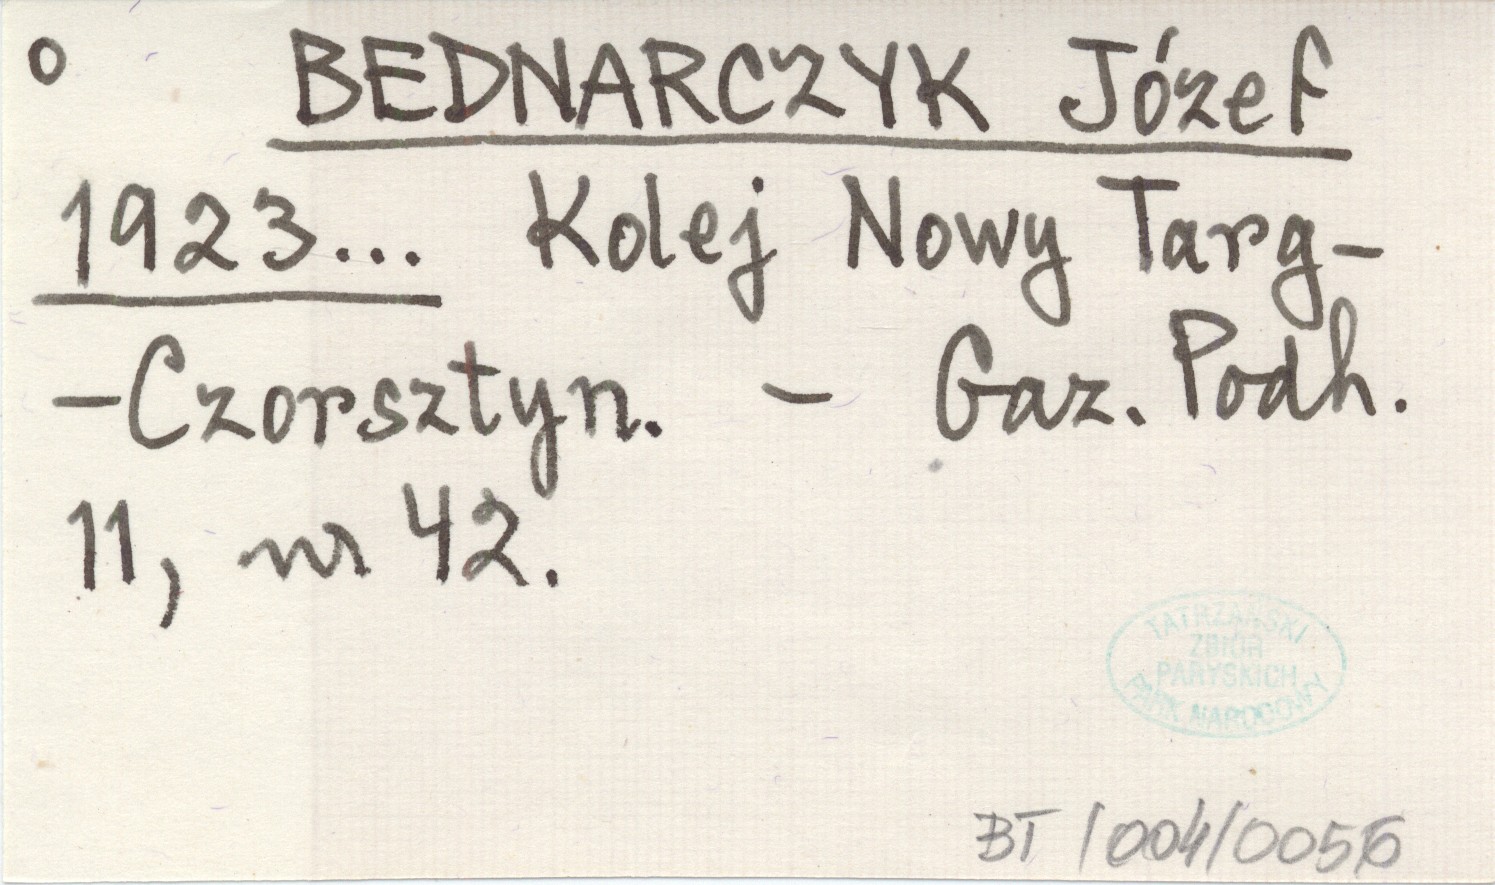 o BEDNARCZYK Józef
1923... Kolej Nowy Targ-
-Czorsztyn. - Gaz. Podh.
11, nr 42.
TATRZAŃSKI
ZBIÓR
PARYSKICH
PARK NARODOWY
BT/004/0056